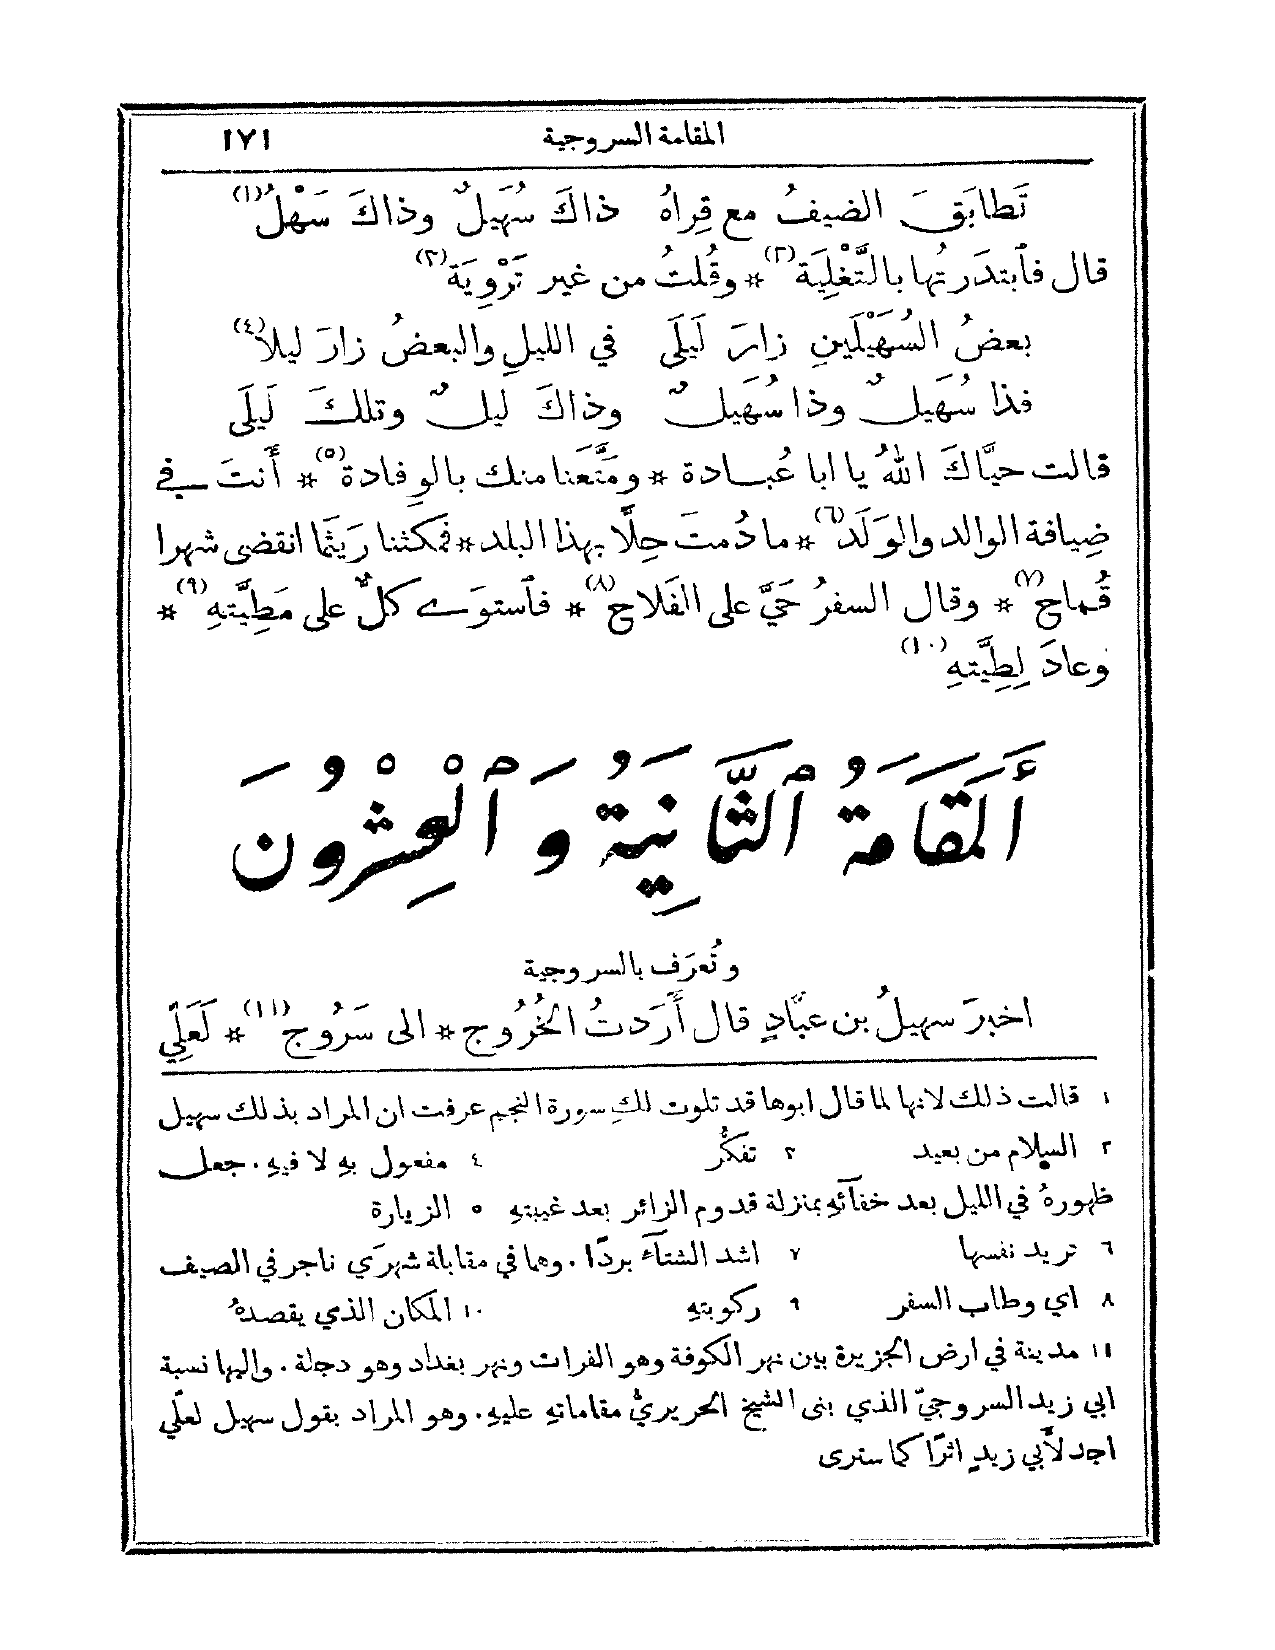 المقامة السروجية ١٧١
تَطابَقَ الضيفُ مع قِراهُ ذاكَ سُهَيلٌ وذاكَ سَهْلُ(١)
قال فٱبتدَرتُها بالتَّغْلِيَة(٢) * وقُلتُ من غير تَرْوِيَة(٣)
بعضُ السُهَيْلَينِ زارَ لَيلَى في الليلِ والبعضُ زارَ ليلا(٤)
فذا سُهَيلٌ وذا سُهَيلٌ وذاكَ ليلٌ وتلكَ لَيلَى
قالت حيَّاكَ اللهُ يا ابا عُبادة * ومتَّعنا منك بالوِفادة(٥) * أَنتَ في
ضِيافة الوالد والوَلَد(٦) * ما دُمتَ حِلًّا بهذا البلد * فمكثنا رَيثَما انقضى شهرا
قُماحٍ(٧) * وقال السفرُ حَيَّ على الفَلاحِ(٨) * فٱستوَى كلٌّ على مَطِيَّتهِ(٩) *
وعادَ لِطِيَّتهِ(١٠)
أَلمَقَامَةُ ٱلثَّانِيَةُ وَٱلْعِشْرُونَ
وتُعرَف بالسروجية
اخبرَ سهيلُ بن عبَّادٍ قال أَرَدتُ الخُرُوج * الى سَرُوج(١١) * لَعَلِّي
١ قالت ذلك لانها لما قال ابوها قد تلوت لكِ سورة النجم عرفت ان المراد بذلك سهيل
٢ السلام من بعيد ٣ تفكُّر ٤ مفعول بهِ لا فيهِ. جعل
ظهورهُ في الليل بعد خفآئهِ بمنزلة قدوم الزائر بعد غيبتهِ ٥ الزيارة
٦ تريد نفسها ٧ اشد الشتآء بردًا. وهما في مقابلة شهرَي ناجر في الصيف
٨ اي وطاب السفر ٩ ركوبتهِ ١٠ المكان الذي يقصدهُ
١١ مدينة في ارض الجزيرة بين نهر الكوفة وهو الفرات ونهر بغداد وهو دجلة. واليها نسبة
ابي زيد السروجيّ الذي بنى الشيخ الحريريُّ مقاماتهِ عليهِ. وهو المراد بقول سهيل لعلّي
اجد لأَبي زيدٍ اثرًا كما سترى